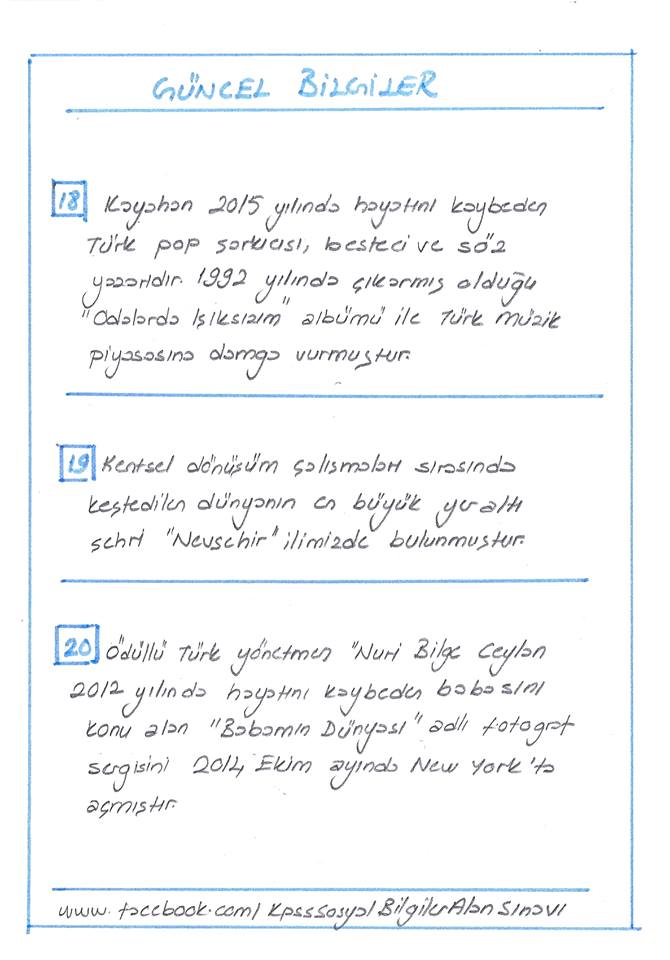 GÜNCEL BİLGİLER
18 Kayahan 2015 yılında hayatını kaybeden
Türk pop şarkıcısı, besteci ve söz
yazarıdır. 1992 yılında çıkarmış olduğu
"Odalarda Işıksızım" albümü ile Türk müzik
piyasasına damga vurmuştur.
19 Kentsel dönüşüm çalışmaları sırasında
keşfedilen dünyanın en büyük yeraltı
şehri "Nevşehir" ilimizde bulunmuştur.
20 Ödüllü Türk yönetmen "Nuri Bilge Ceylan
2012 yılında hayatını kaybeden babasını
konu alan "Babamın Dünyası" adlı fotoğraf
sergisini 2014 Ekim ayında New York'ta
açmıştır.
www.facebook.com/KpssSosyalBilgilerAlanSınavı